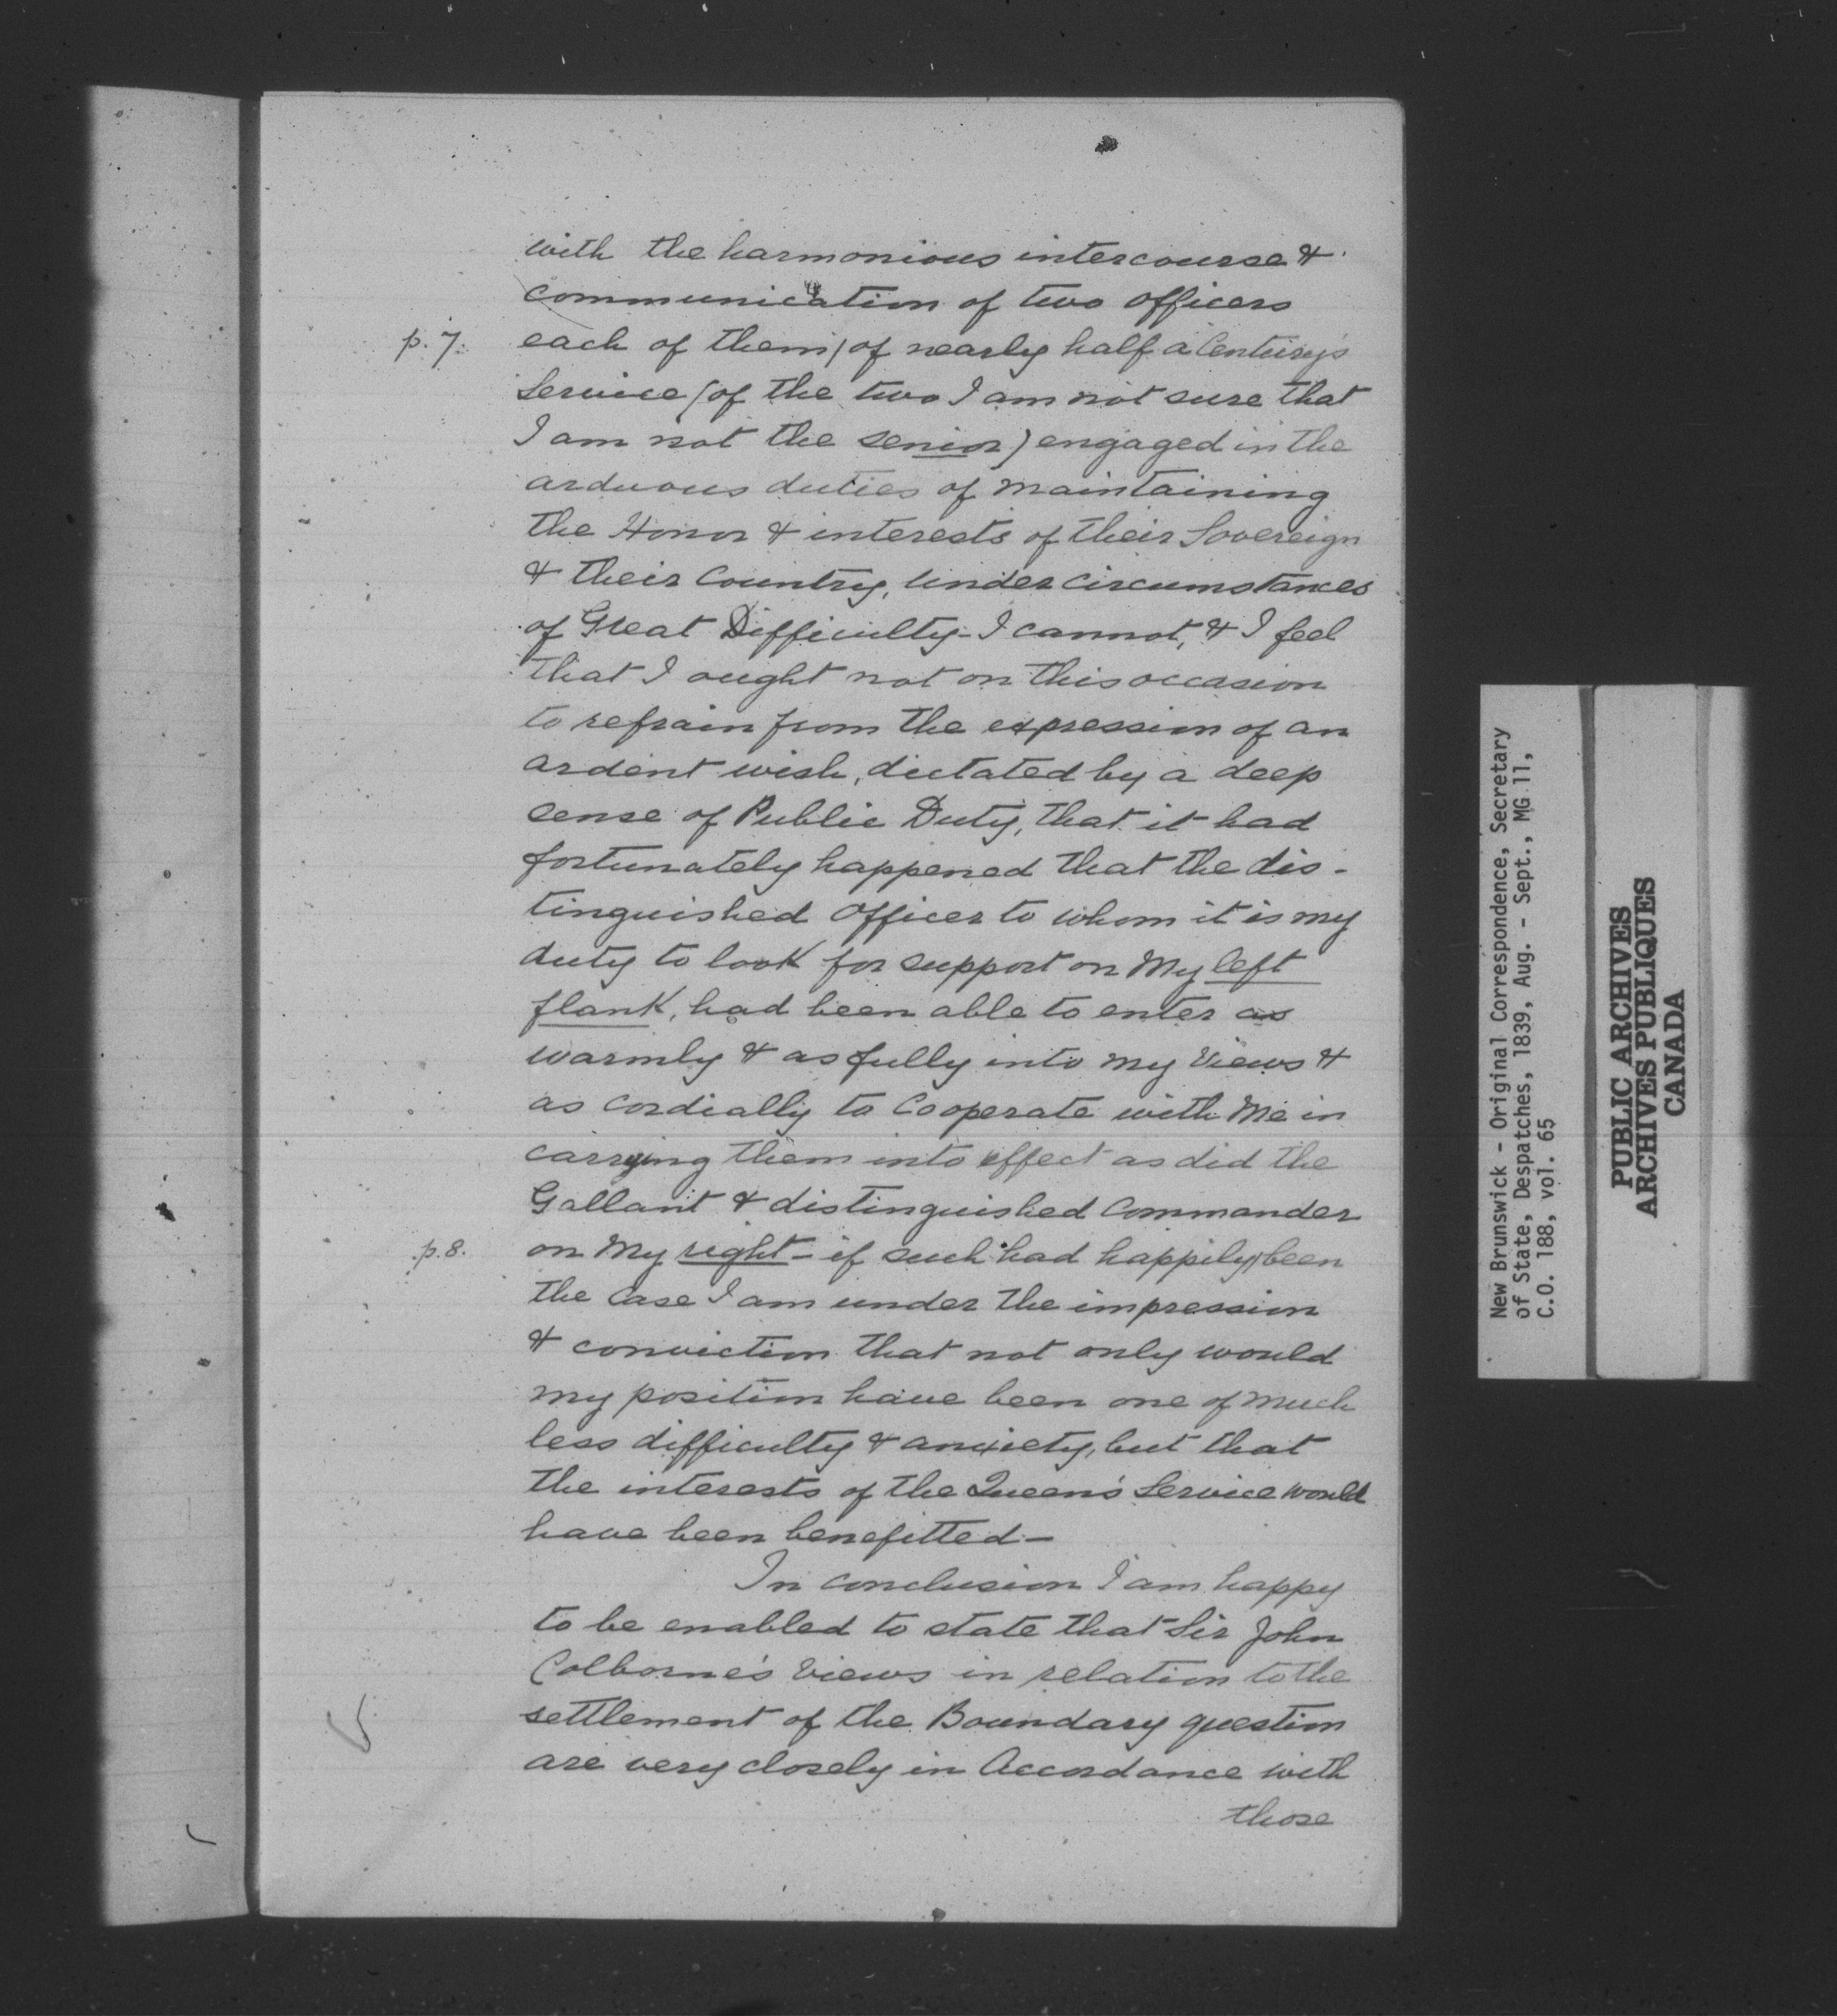 with the harmonious intercourse &
communication of two officers
p. 7. each of them/of nearly half a Century's
Service (of the two I am not sure that
I am not the senior) engaged in the
arduous duties of maintaining
the Honor & interests of their Sovereign
& their Country, Under circumstances
of Great Difficulty - I cannot, & I feel
that I ought not on this occasion
to refrain from the expression of an
ardent wish, dictated by a deep
sense of Public Duty, that it had
fortunately happened that the dis-
tinguished Officer to whom it is my
duty to look for support on My left
flank, had been able to enter as
warmly & as fully into my Views &
as cordially to Cooperate with Me in
carrying them into effect as did the
Gallant & distinguished Commander
p. 8. on My right - if such had happily/been
the Case I am under the impression
& conviction that not only would
my position have been one of much
less difficulty & anxiety, but that
the interests of the Queen's Service would
have been benefitted -
In conclusion I am happy
to be enabled to state that Sir John
Colborne's Views in relation to the
settlement of the Boundary question
are very closely in Accordance with
those
New Brunswick - Original Correspondence, Secretary
of State, Despatches, 1839, Aug. - Sept., MG 11,
C.O. 188, vol. 65
PUBLIC ARCHIVES
ARCHIVES PUBLIQUES
CANADA